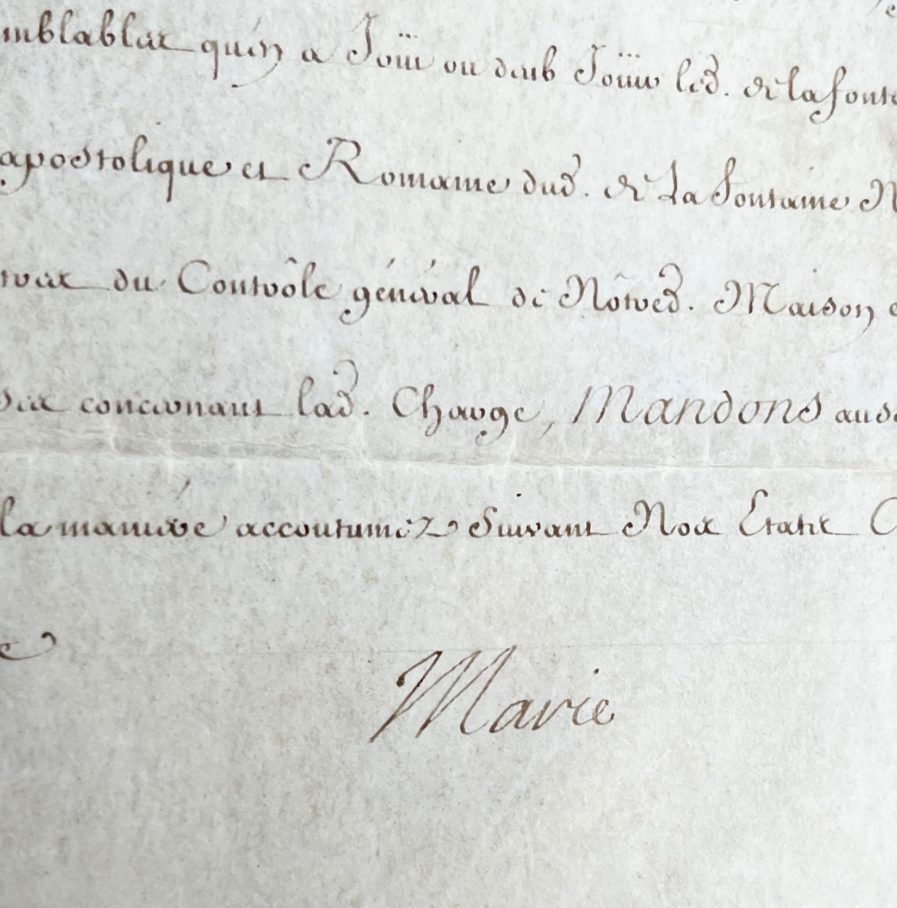 mblables quén a Joüi ou deub Joüir led. de la fonta
apostolique et Romaine dud. de La fontaine N
du Contrôle général de Nôtred. Maison
concernant lad. Charge, Mandons aus
la maniére accoutumez Suivant Nos Etats
Marie